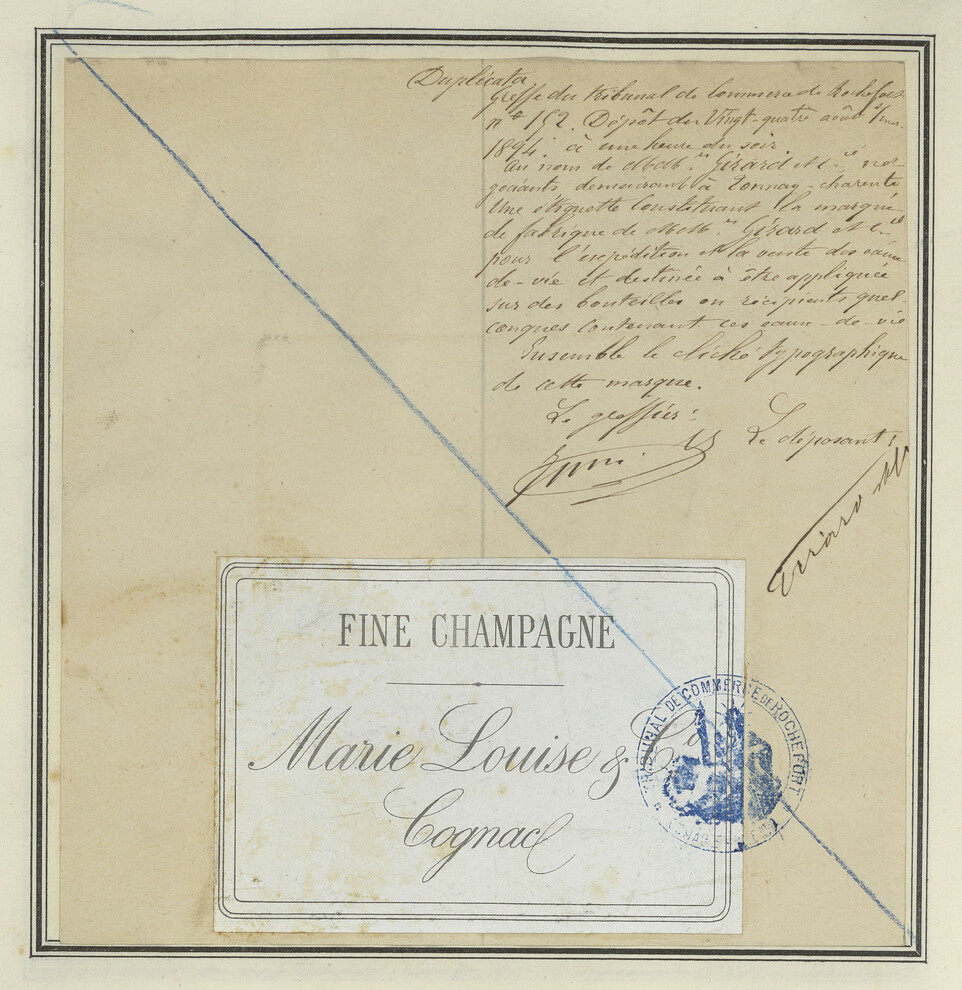 Duplicata
Greffe du tribunal de Commerce de Rochefort
n° 192. Dépôt du Vingt-quatre août
1894. à une heure du soir
au nom de MM.rs Girard et C.ie né-
gociants demeurant à Tonnay-charente
Une étiquette Constituant la marque
de fabrique de MM.rs Girard et C.ie
pour l'expédition et la vente des eaux-
de-vie et destinée à être appliquée
sur des bouteilles ou récipients quel-
conques Contenant ces eaux-de-vie
Ensemble le cliché typographique
de cette marque.
Le greffier:
Le déposant:
Girard et C
FINE CHAMPAGNE
Marie Louise & Co
Cognac
TRIBUNAL DE COMMERCE DE ROCHEFORT